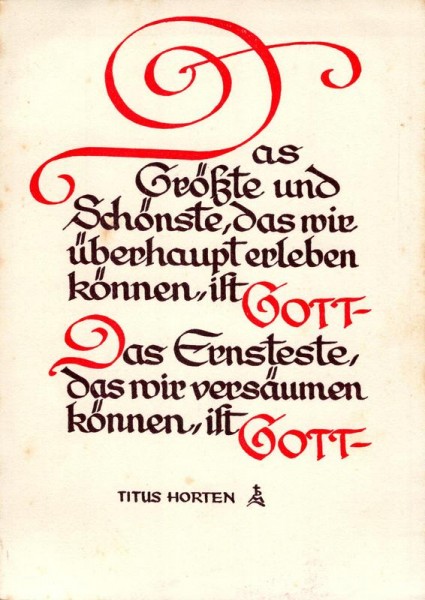 Das
Größte und
Schönste, das wir
überhaupt erleben
können, ist GOTT-
Das Ernsteste,
das wir versäumen
können, ist GOTT-
TITUS HORTEN